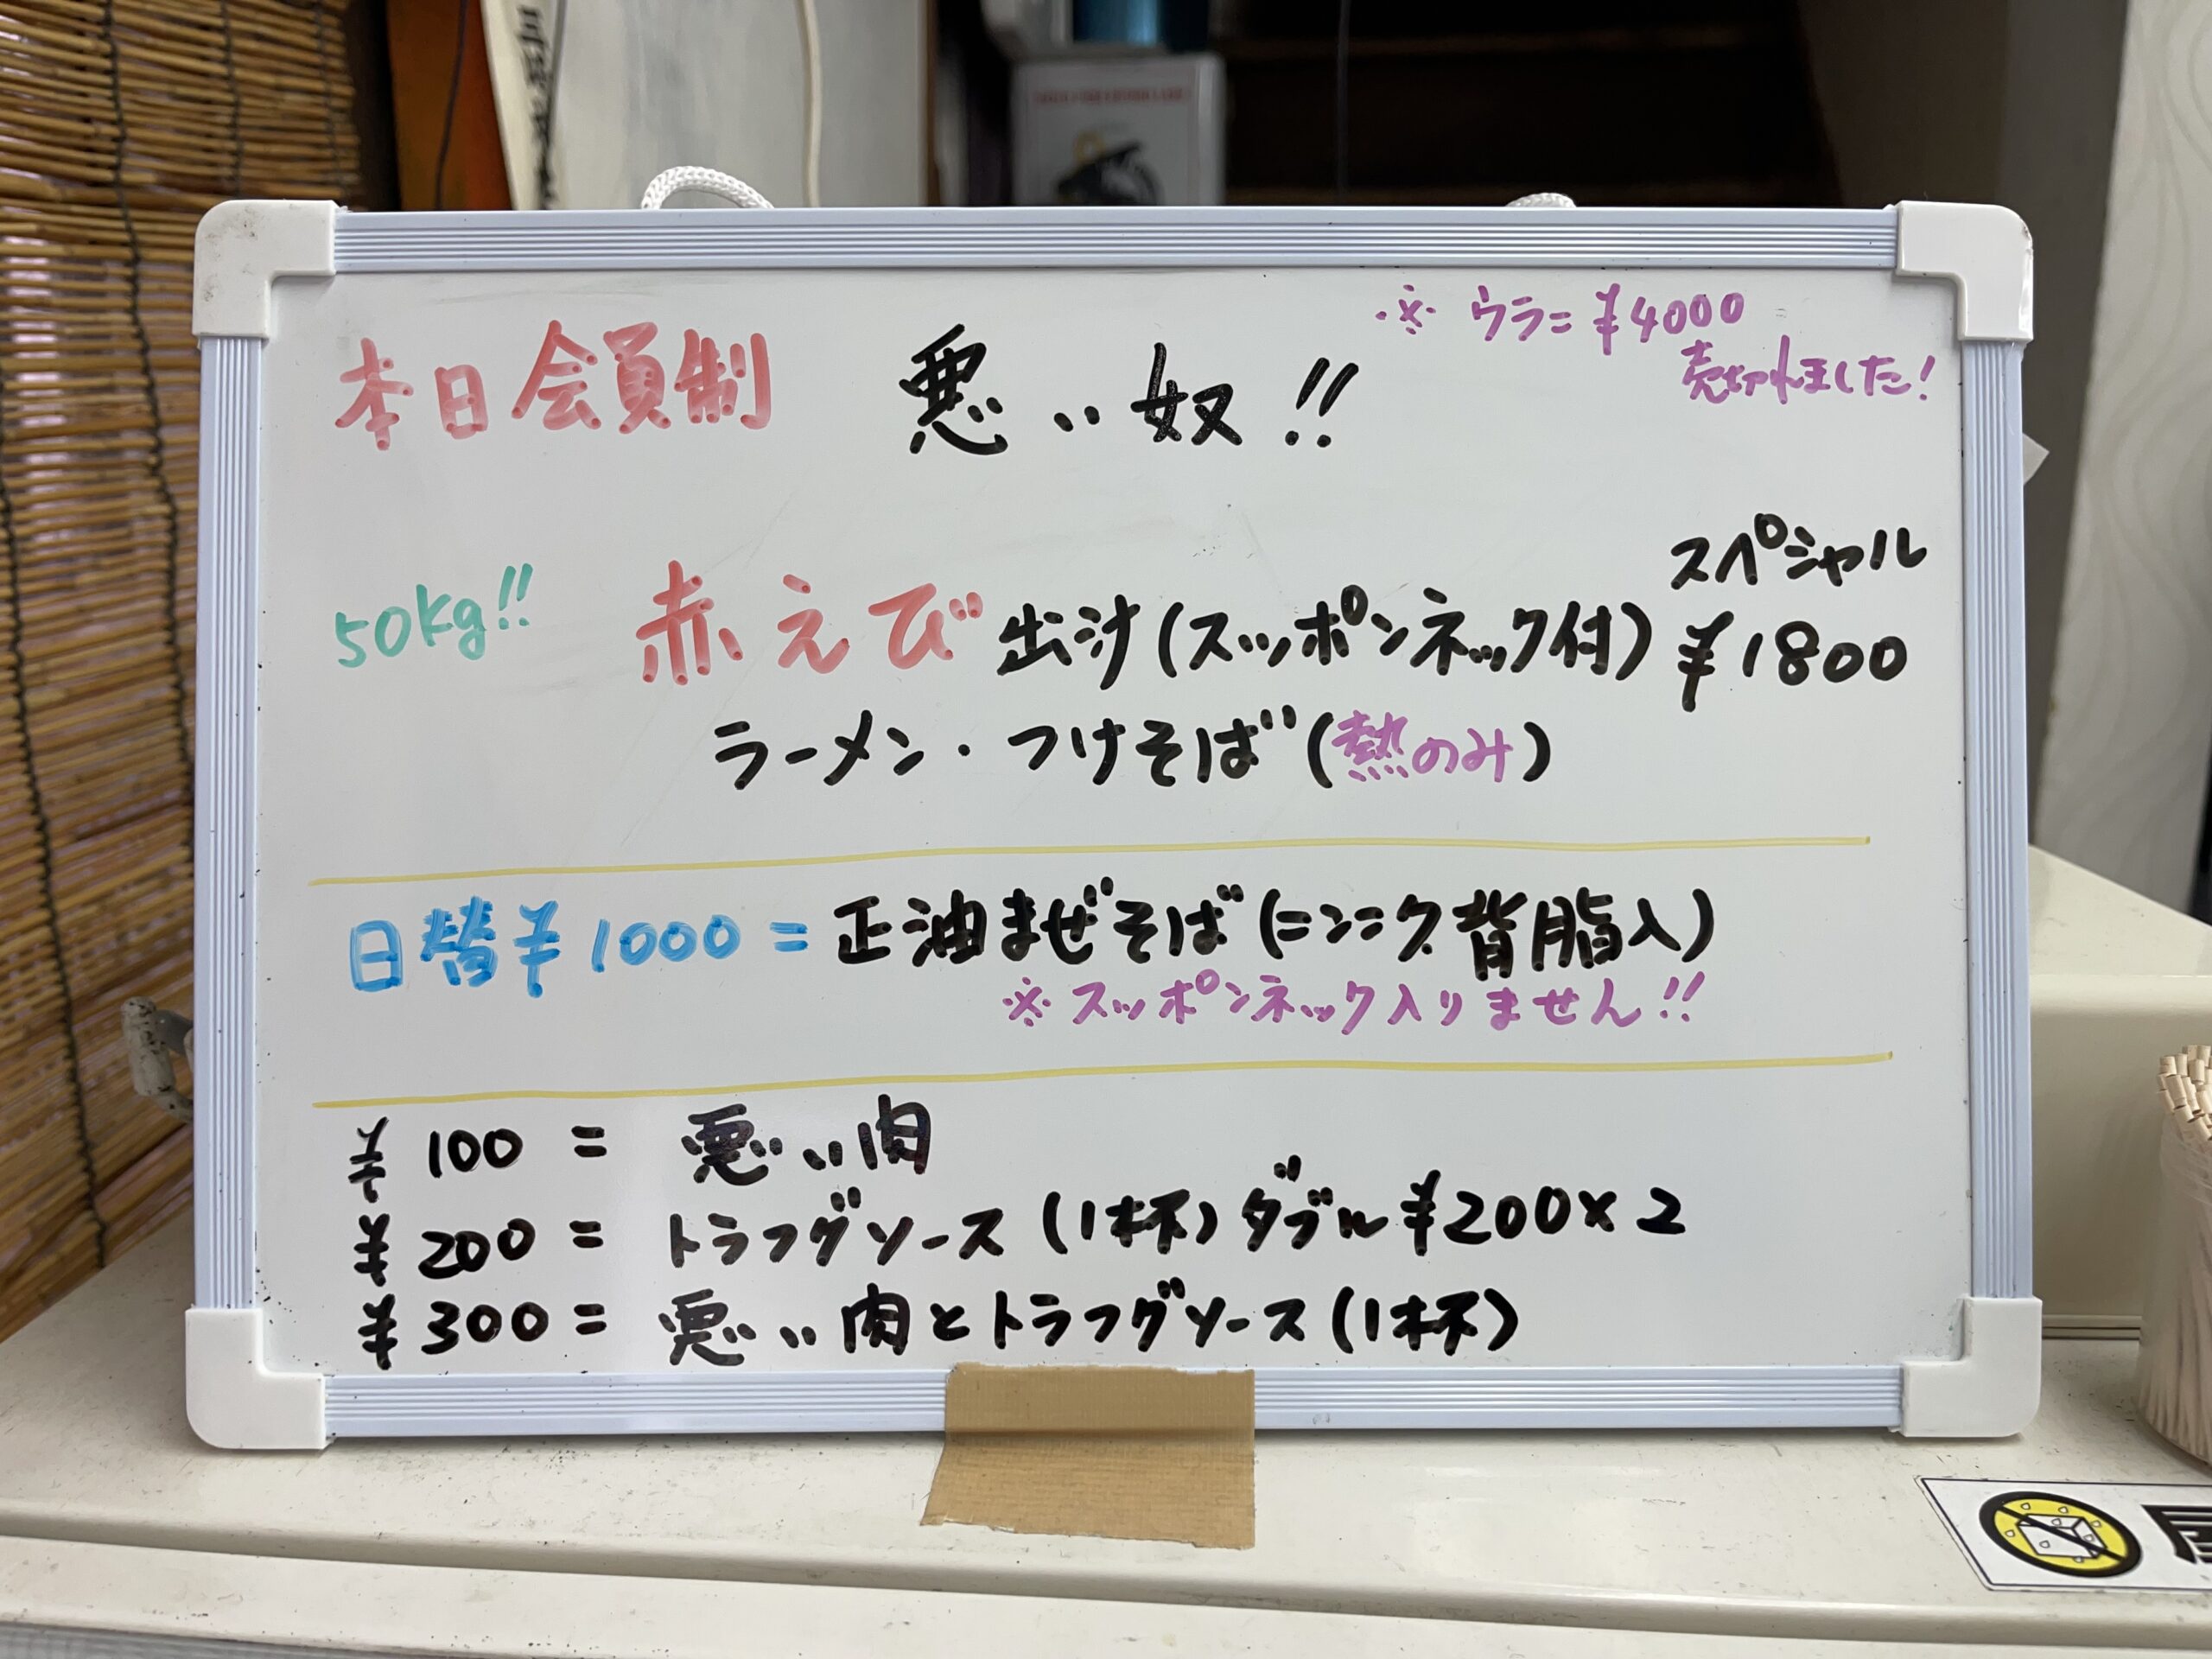 本日会員制 悪い奴!!
※ ウラ=¥4000
売切れました!
50kg!! 赤えび出汁(スッポンネック付) スペシャル ¥1800
ラーメン・つけそば(熱のみ)
日替¥1000=正油まぜそば(ニンニク背脂入)
※スッポンネック入りません!!
¥100 = 悪い肉
¥200 = トラフグソース(1杯)ダブル¥200×2
¥300 = 悪い肉とトラフグソース(1杯)